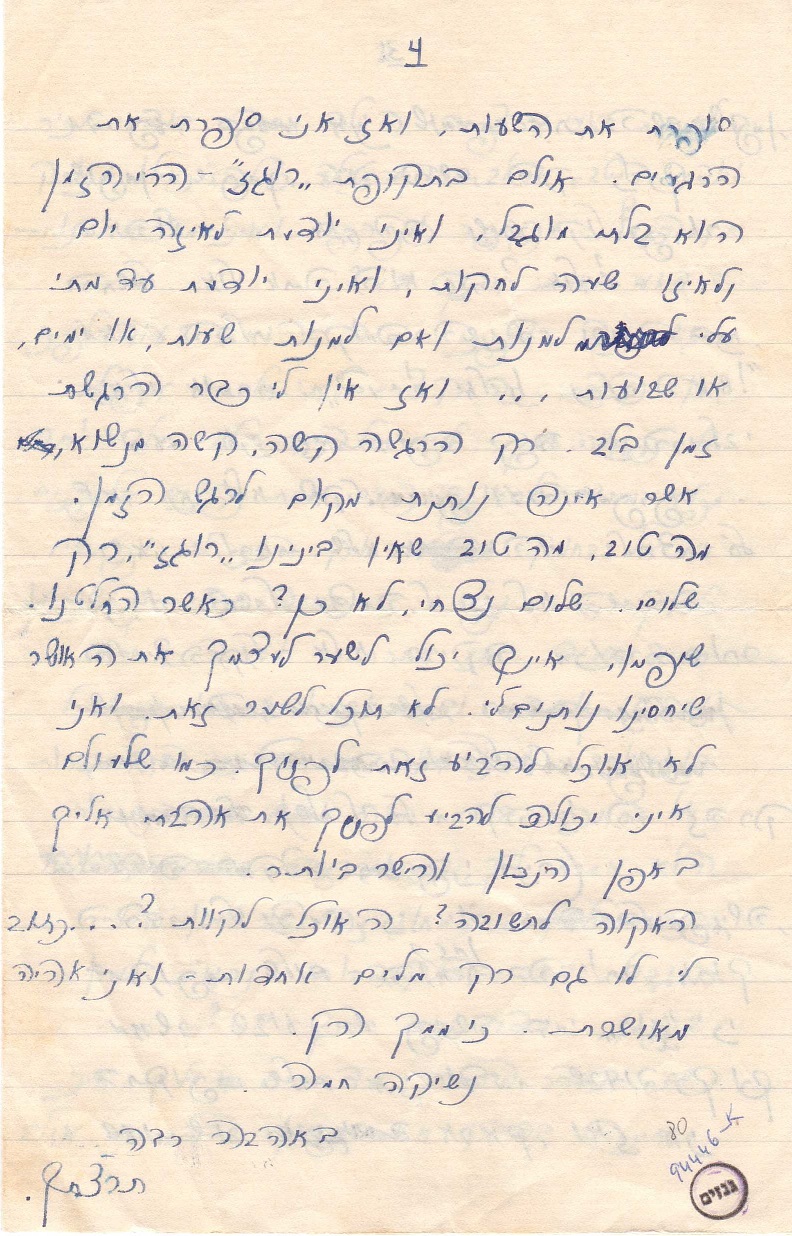 4
סופרת את השעות, ואז אני סופרת את
הרגעים. אולם בתקופת "רוגז" - הרי הזמן
הוא בלתי מוגבל, ואיני יודעת לאיזה יום
ולאיזו שעה לחכות, ואיני יודעת עד מתי
עלי למנות ואם למנות שעות, או ימים,
או שבועות ... ואז אין לי כבר הרגשת
זמן בלב. רק הרגשה קשה, קשה מנשוא,
אשר אינה נותנת מקום לרגש הזמן.
מה טוב, מה טוב שאין בינינו "רוגז", רק
שלום. שלום נצחי, לא כן? כאשר החלטנו.
אינך יכול לשער לעצמך את האושר
שיחסינו נותנים לי. לא תוכל לשער זאת. ואני
לא אוכל להביע זאת לפניך. כמו שלעולם
איני יכולה להביע לפניך את אהבתי אליך
באפן הנכון והישר ביותר.
האקוה לתשובה? האוכל לקוות?... כתוב
לי לו גם רק מלים אחדות - ואני אהיה
מאושרת. כי ממך הן.
נשיקה חמה.
באהבה רבה
תרצתך.
80
94446-א
גנזים